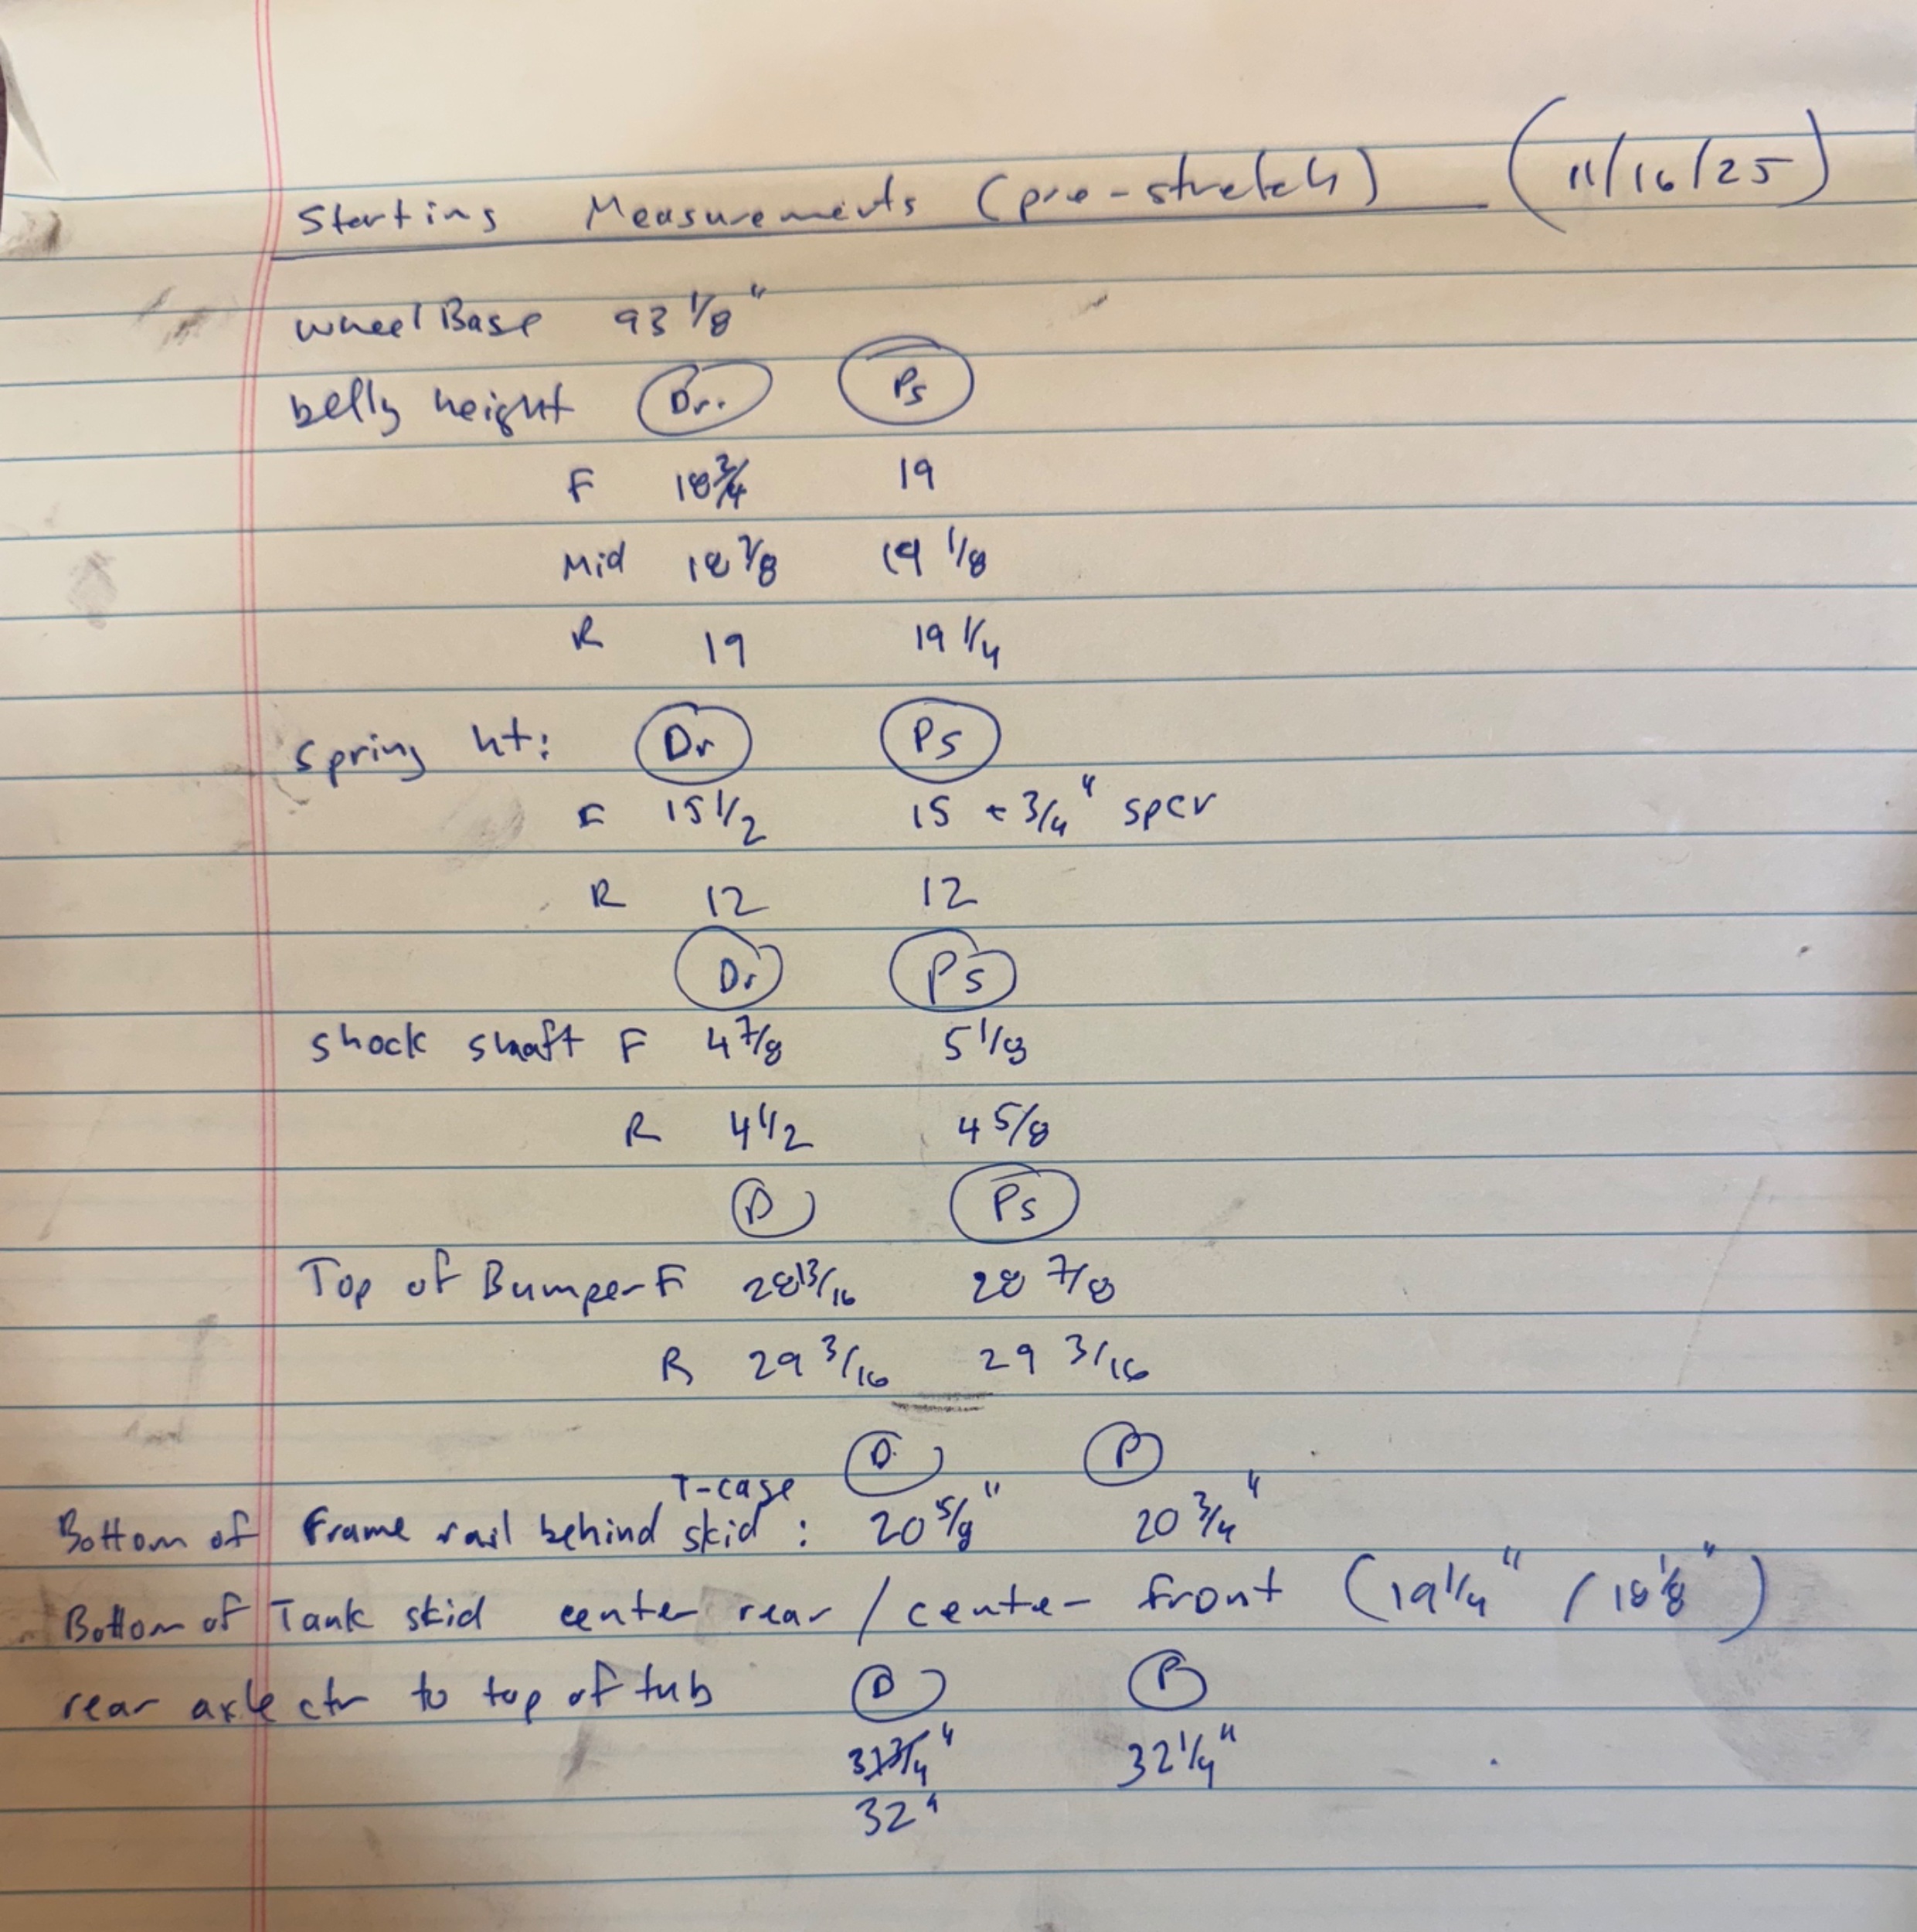 Starting Measurements (pre-stretch) (11/16/25)
wheelBase 93 1/8"
belly height Dr. Ps
F 18 3/4 19
Mid 18 7/8 19 1/8
R 19 19 1/4
Spring ht: Dr Ps
F 15 1/2 15 + 3/4" spcr
R 12 12
Dr Ps
shock shaft F 4 7/8 5 1/8
R 4 1/2 4 5/8
D Ps
Top of Bumper F 28 13/16 28 7/8
R 29 3/16 29 3/16
D P
T-case
Bottom of Frame rail behind skid : 20 5/8" 20 3/4"
Bottom of Tank skid center rear / center front (19 1/4" / 18 1/8")
rear axle ctr to top of tub D P
3/4" 32 1/4"
32"